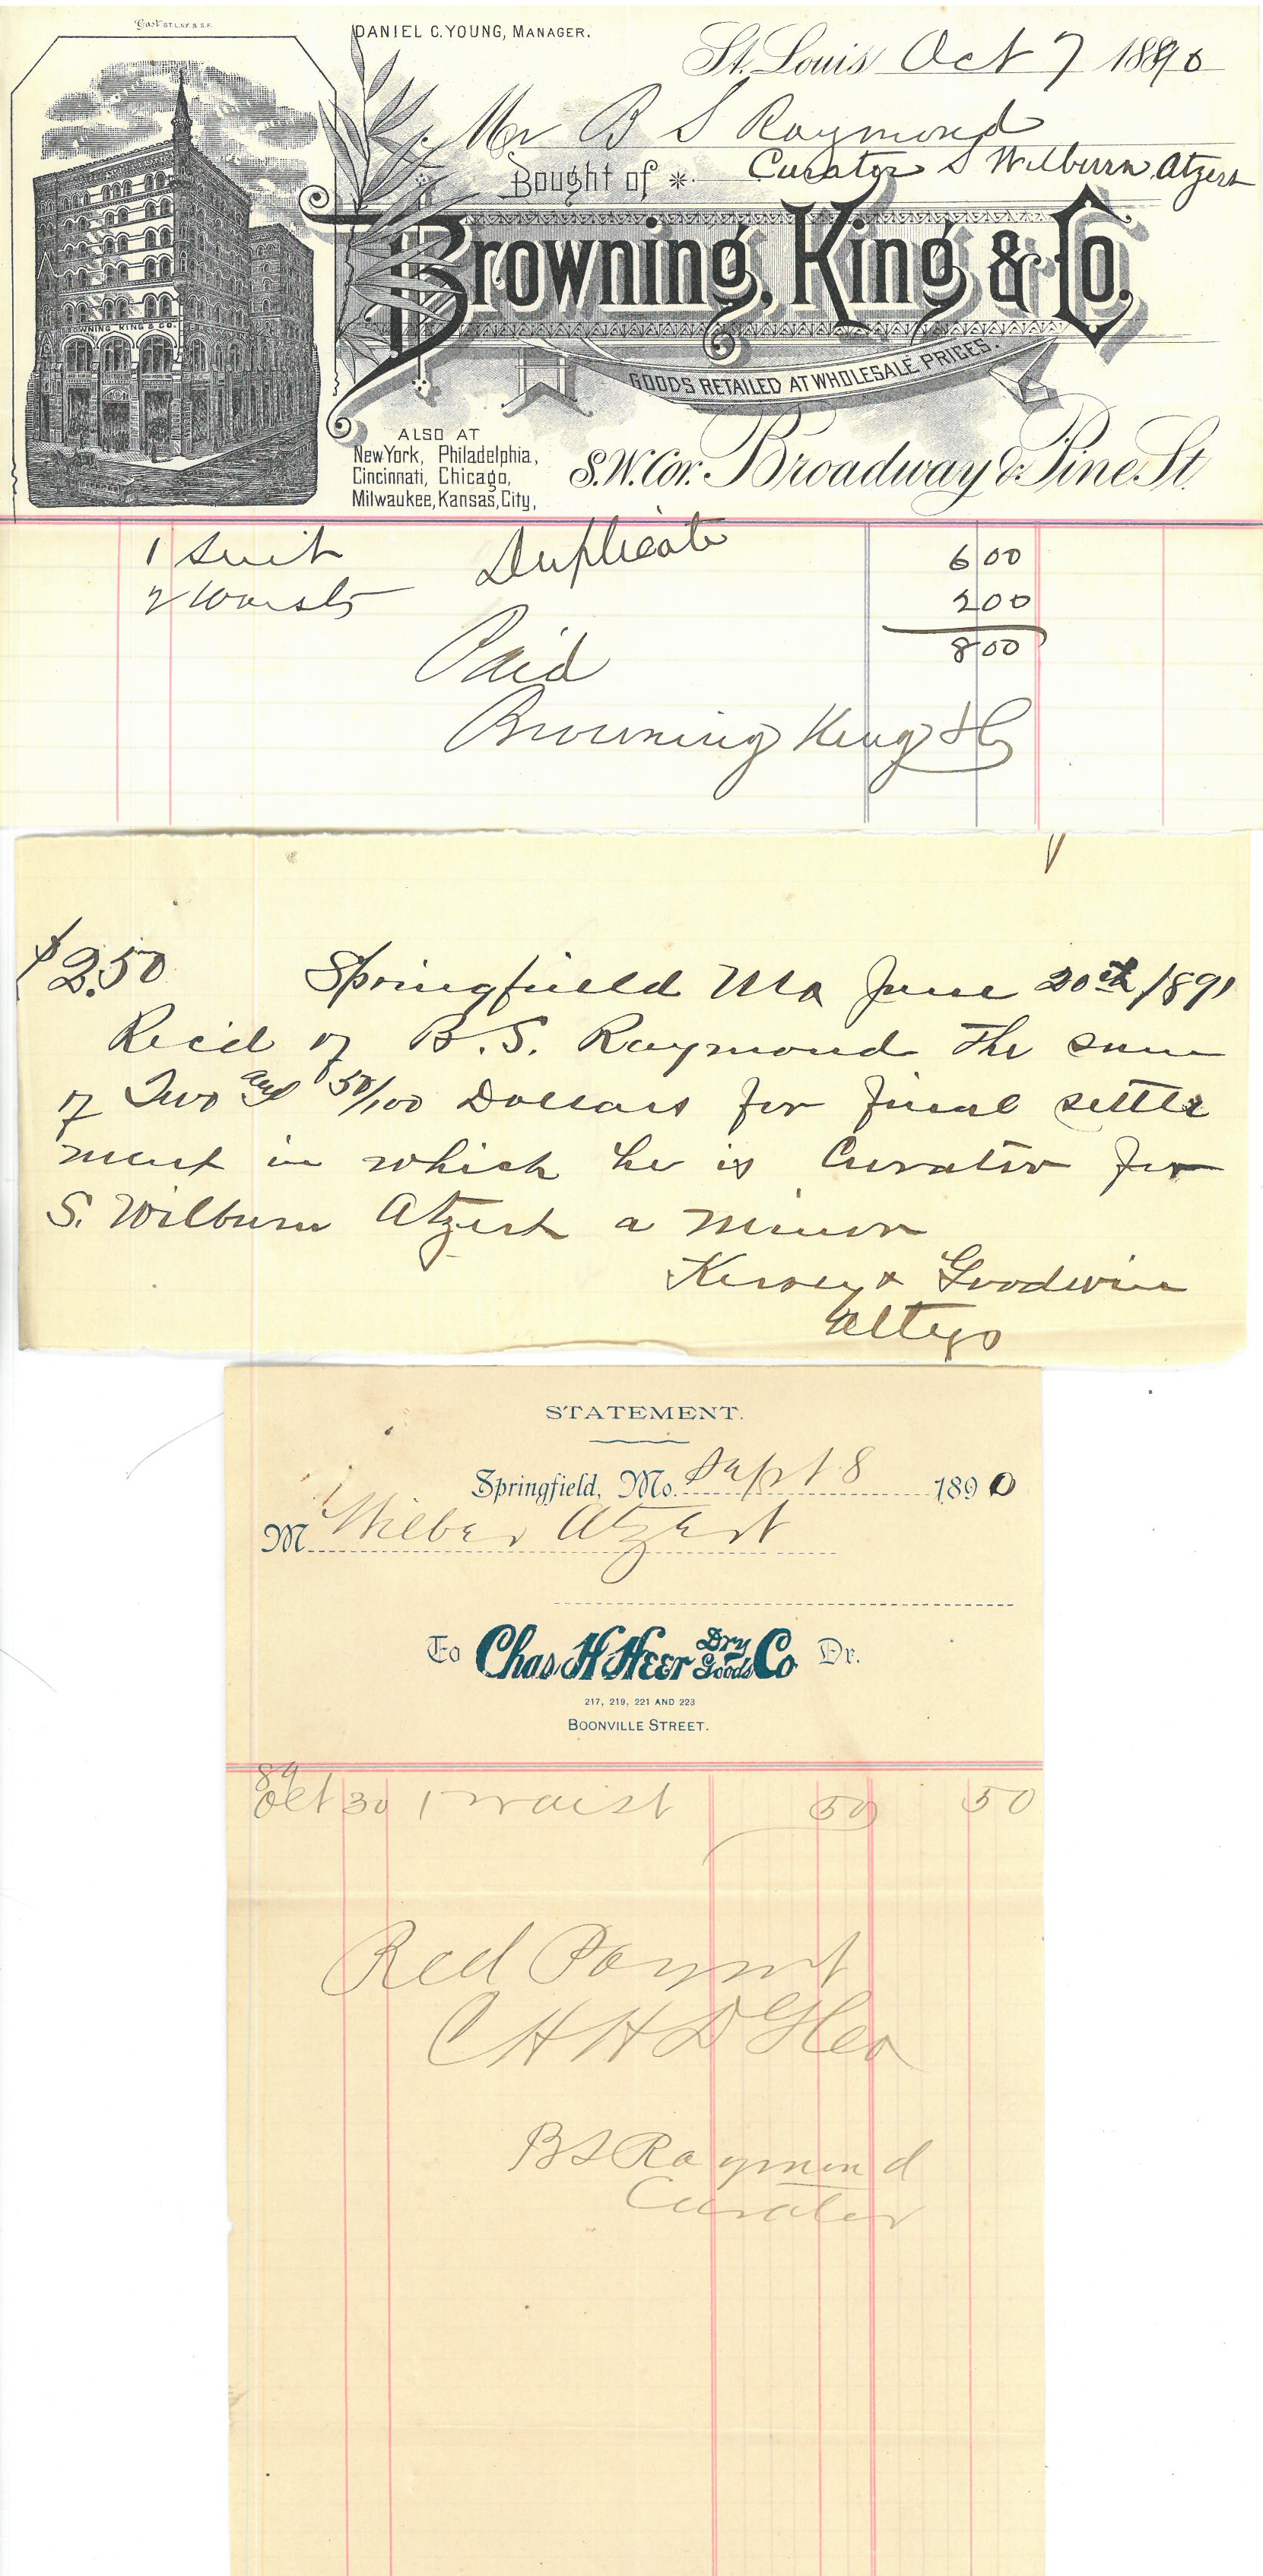 DANIEL C. YOUNG, MANAGER.
St. Louis Oct 7 1890
Mr B S Raymond
Bought of Curator S Wilburn Atzert
BROWNING KING & CO.
Browning, King & Co.
GOODS RETAILED AT WHOLESALE PRICES.
ALSO AT
New York, Philadelphia,
Cincinnati, Chicago,
Milwaukee, Kansas, City,
S.W. Cor. Broadway & Pine St.
1 Suit Duplicate 6 00
2 Waists 2 00
8 00
Paid
Browning King & Co
$2.50 Springfield Mo June 20th 1891
Rec'd of B. S. Raymond the sum
of Two and 50/100 Dollars for final settle
ment in which he is Curator for
S. Wilburn Atzert a minor
Kersey & Goodwin
Attys
STATEMENT.
Springfield, Mo. Sept 8 1890
M Wilber Atzert
To Chas H Heer Dry Goods Co Dr.
217, 219, 221 AND 223
BOONVILLE STREET.
89
Oct 30 1 waist 50 50
Recd Paymt
C H H D G Co
B S Raymond
Curator